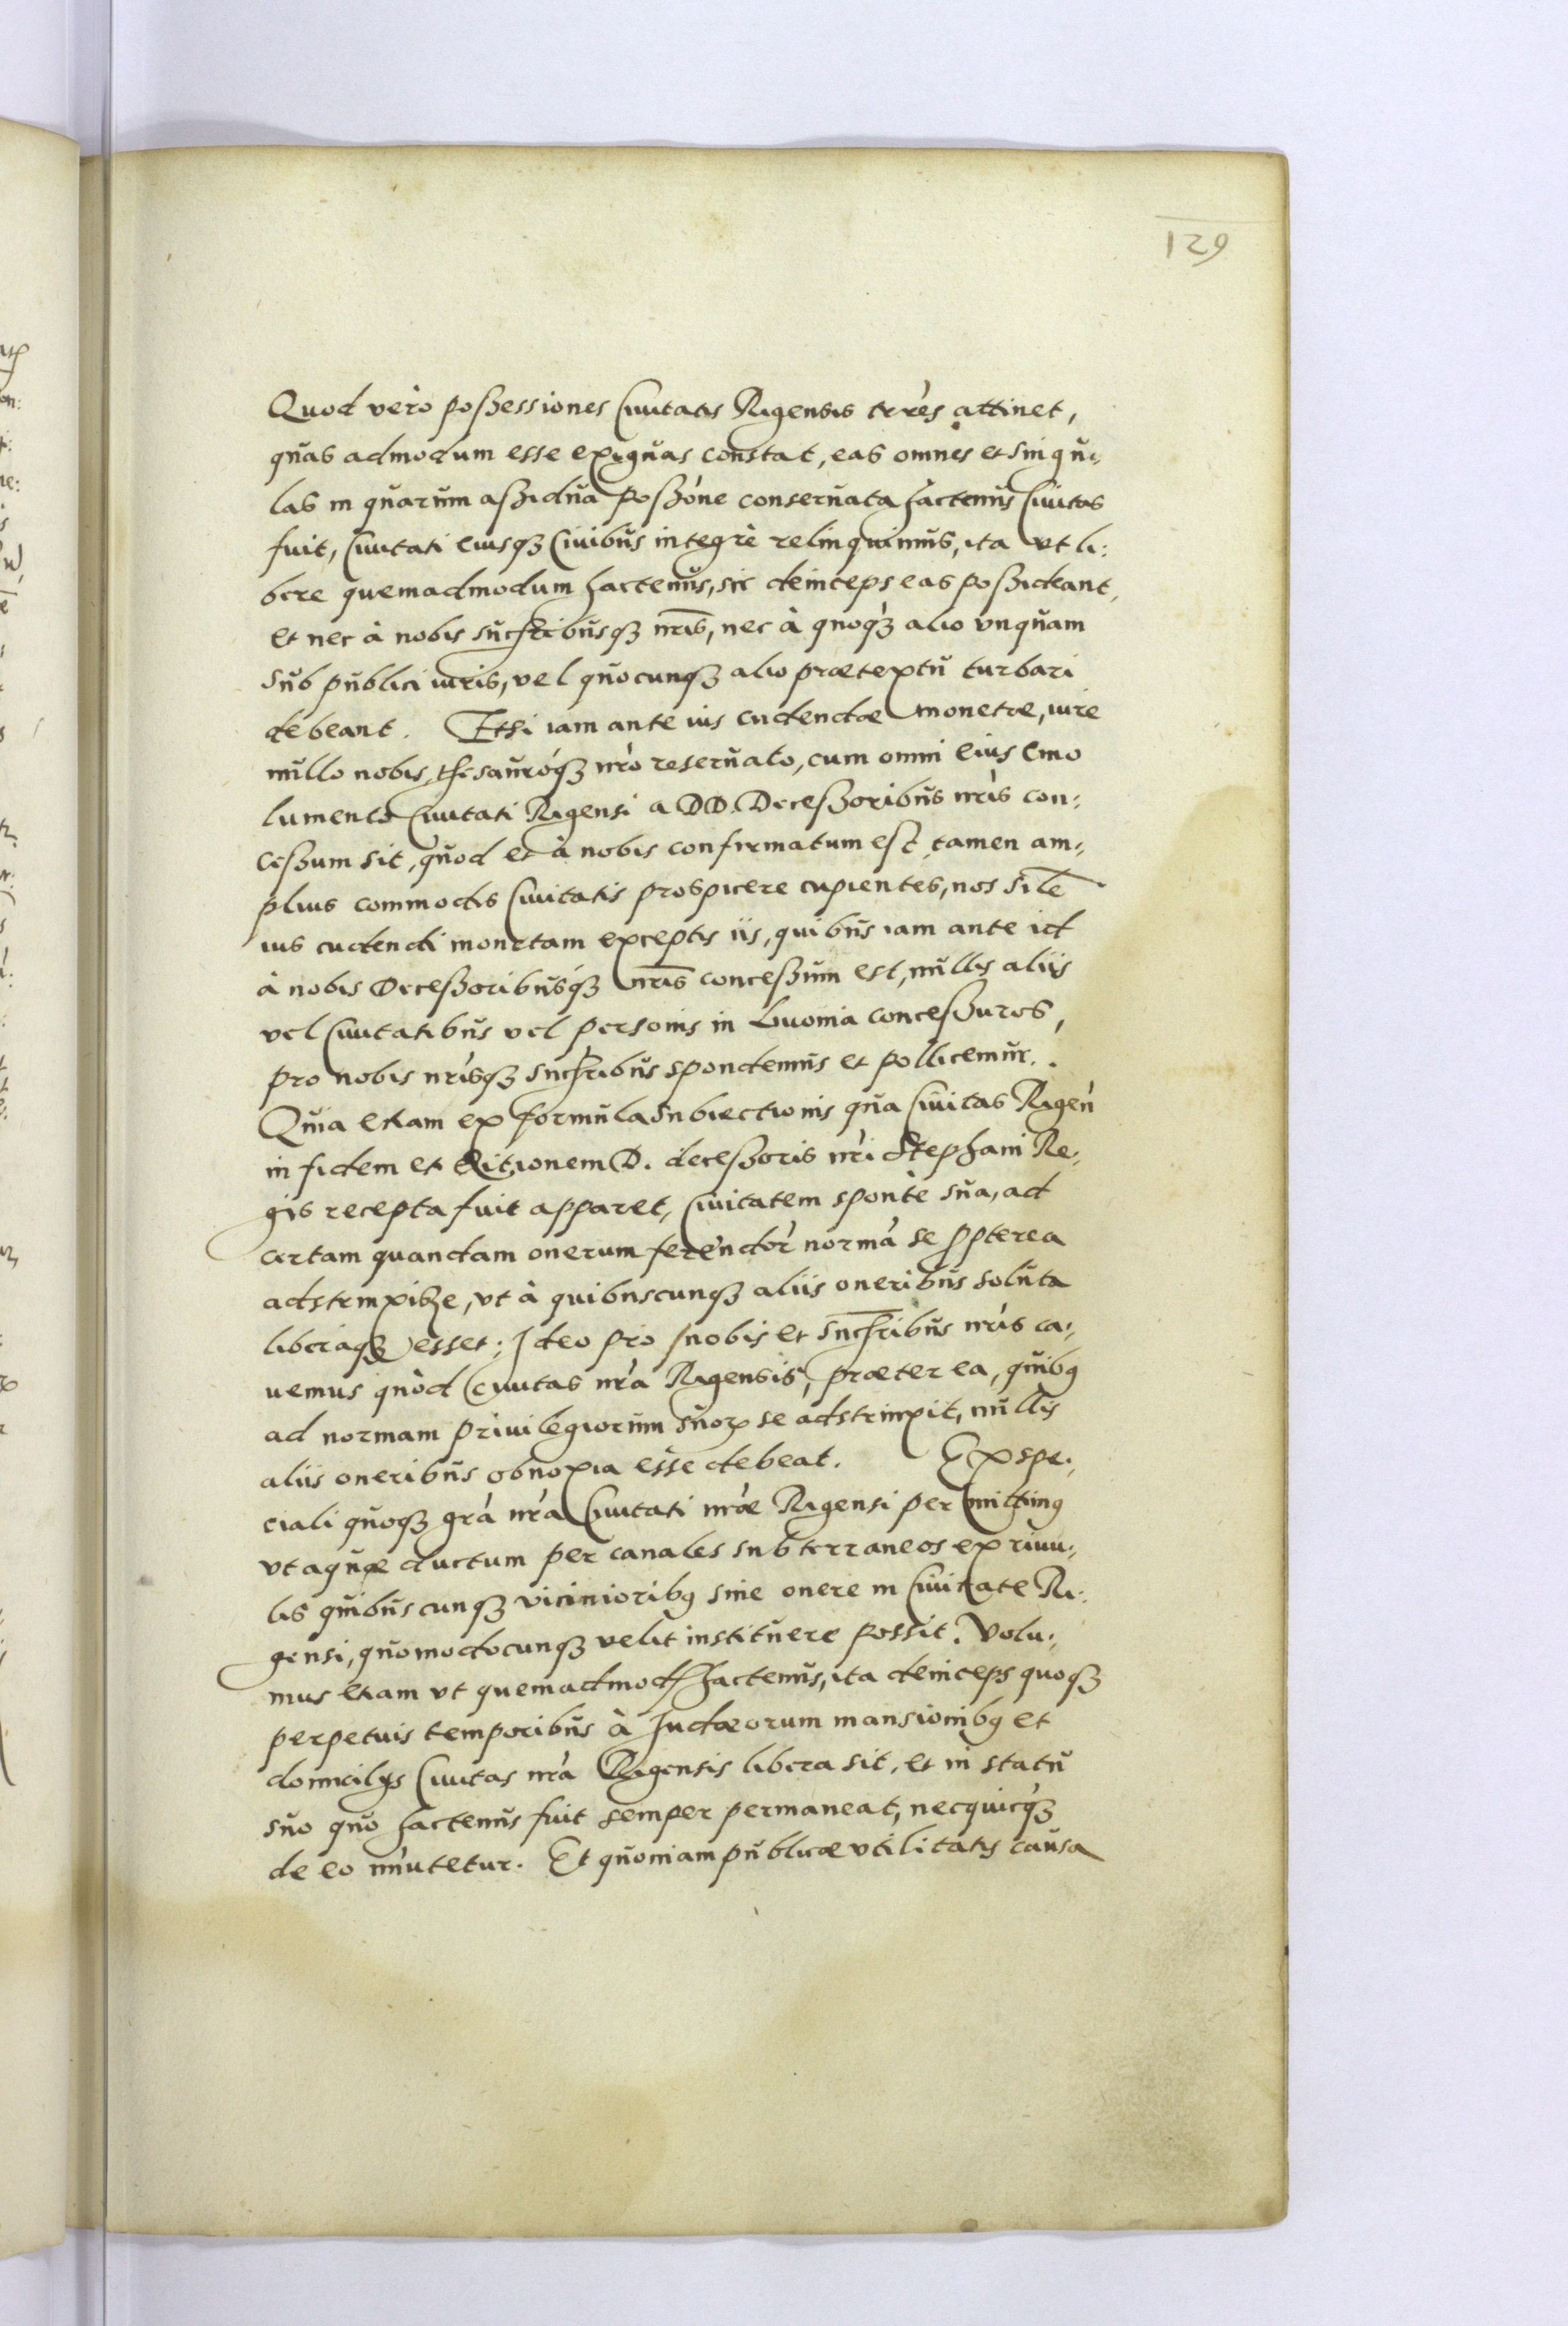 129
Quod verò possessiones Ciuitatis Rigensis trrès attinet,
quas admodum esse exiguas constat, eas omnes et singu„
las in quarum assidua possóne conseruata hactenus Ciuitas
fuit, Ciuitati eiusq3 Ciuibus integrè relinquimus, ita vt li:
bere quemadmodum hactenus, sic deinceps eas possideant,
et nec à nobis succribusq3 nris, nec à quoq3 alio vnquam
sub publici iuris, vel quocunq3 alio prætextu turbari
debeant. Etsi iam ante ius cudendæ monetæ, iure
nullo nobis, thesauróq3 nrò reseruato, cum omni eius emo
lumento Ciuitati Rigensi a DD. Decessoribus nrìs con:
cessum sit, quod et à nobis confirmatum est, tamen am„
plius commodis Ciuitatis prospicere cupientes, nos sile
ius cudendi monetam exceptis iis, quibus iam ante id
à nobis Decessoribusq3 nris concessum est, nullis aliis
vel Ciuitatibus vel personis in Liuonia concessuros,
pro nobis nrìsq3 succribus spondemus et pollicemur.
Quia etiam ex formula subiectionis qua Ciuitas Rigeǹ
in fidem et ditionem D. decessoris nrì Stephani Re„
gis recepta fuit apparet, Ciuitatem sponte sua, ad
certam quandam onerum ferendor̀ normà se ppterea
adstrinxisse, vt à quibuscunq3 aliis oneribus soluta
liberaq3 esset; Ideo pro nobis et succribus nrìs ca„
uemus quòd Ciuitas nrà Rigensis, præter ea, quibg
ad normam priuilegiorum suorꝝ se adstrinxit, nullis
aliis oneribus obnoxia esse debeat. Ex spe„
ciali quoq3 grà nrà Ciuitati nræ Rigensi permittimg
vt aquæ ductum per canales subterraneos ex riuu„
lis quibuscunq3 vicinioribg sine onere in Ciuitate Ri„
gensi, quomodocunq3 velit instituere possit. Volu„
mus etiam vt quemadmod hactenus, ita deinceps quoq3
perpetuis temporibus à Iudæorum mansionibg et
domicilijs Ciuitas nrà Rigensis libera sit, et in statu
suo quo hactenus fuit semper permaneat, nec quicq3
de eo mutetur. Et quoniam publicæ vtilitatis causa